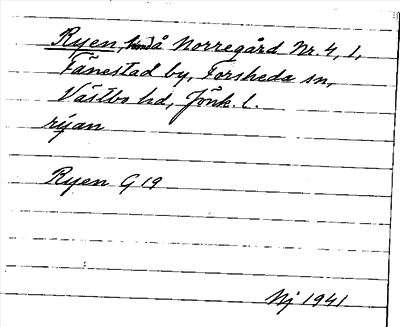 Ryen, hmd å Norregård Nr. 4, 1,
Tånestad by, Forsheda sn,
Västbo hd, Jönk. l.
rýan
Ryen G 19
Nj 1941